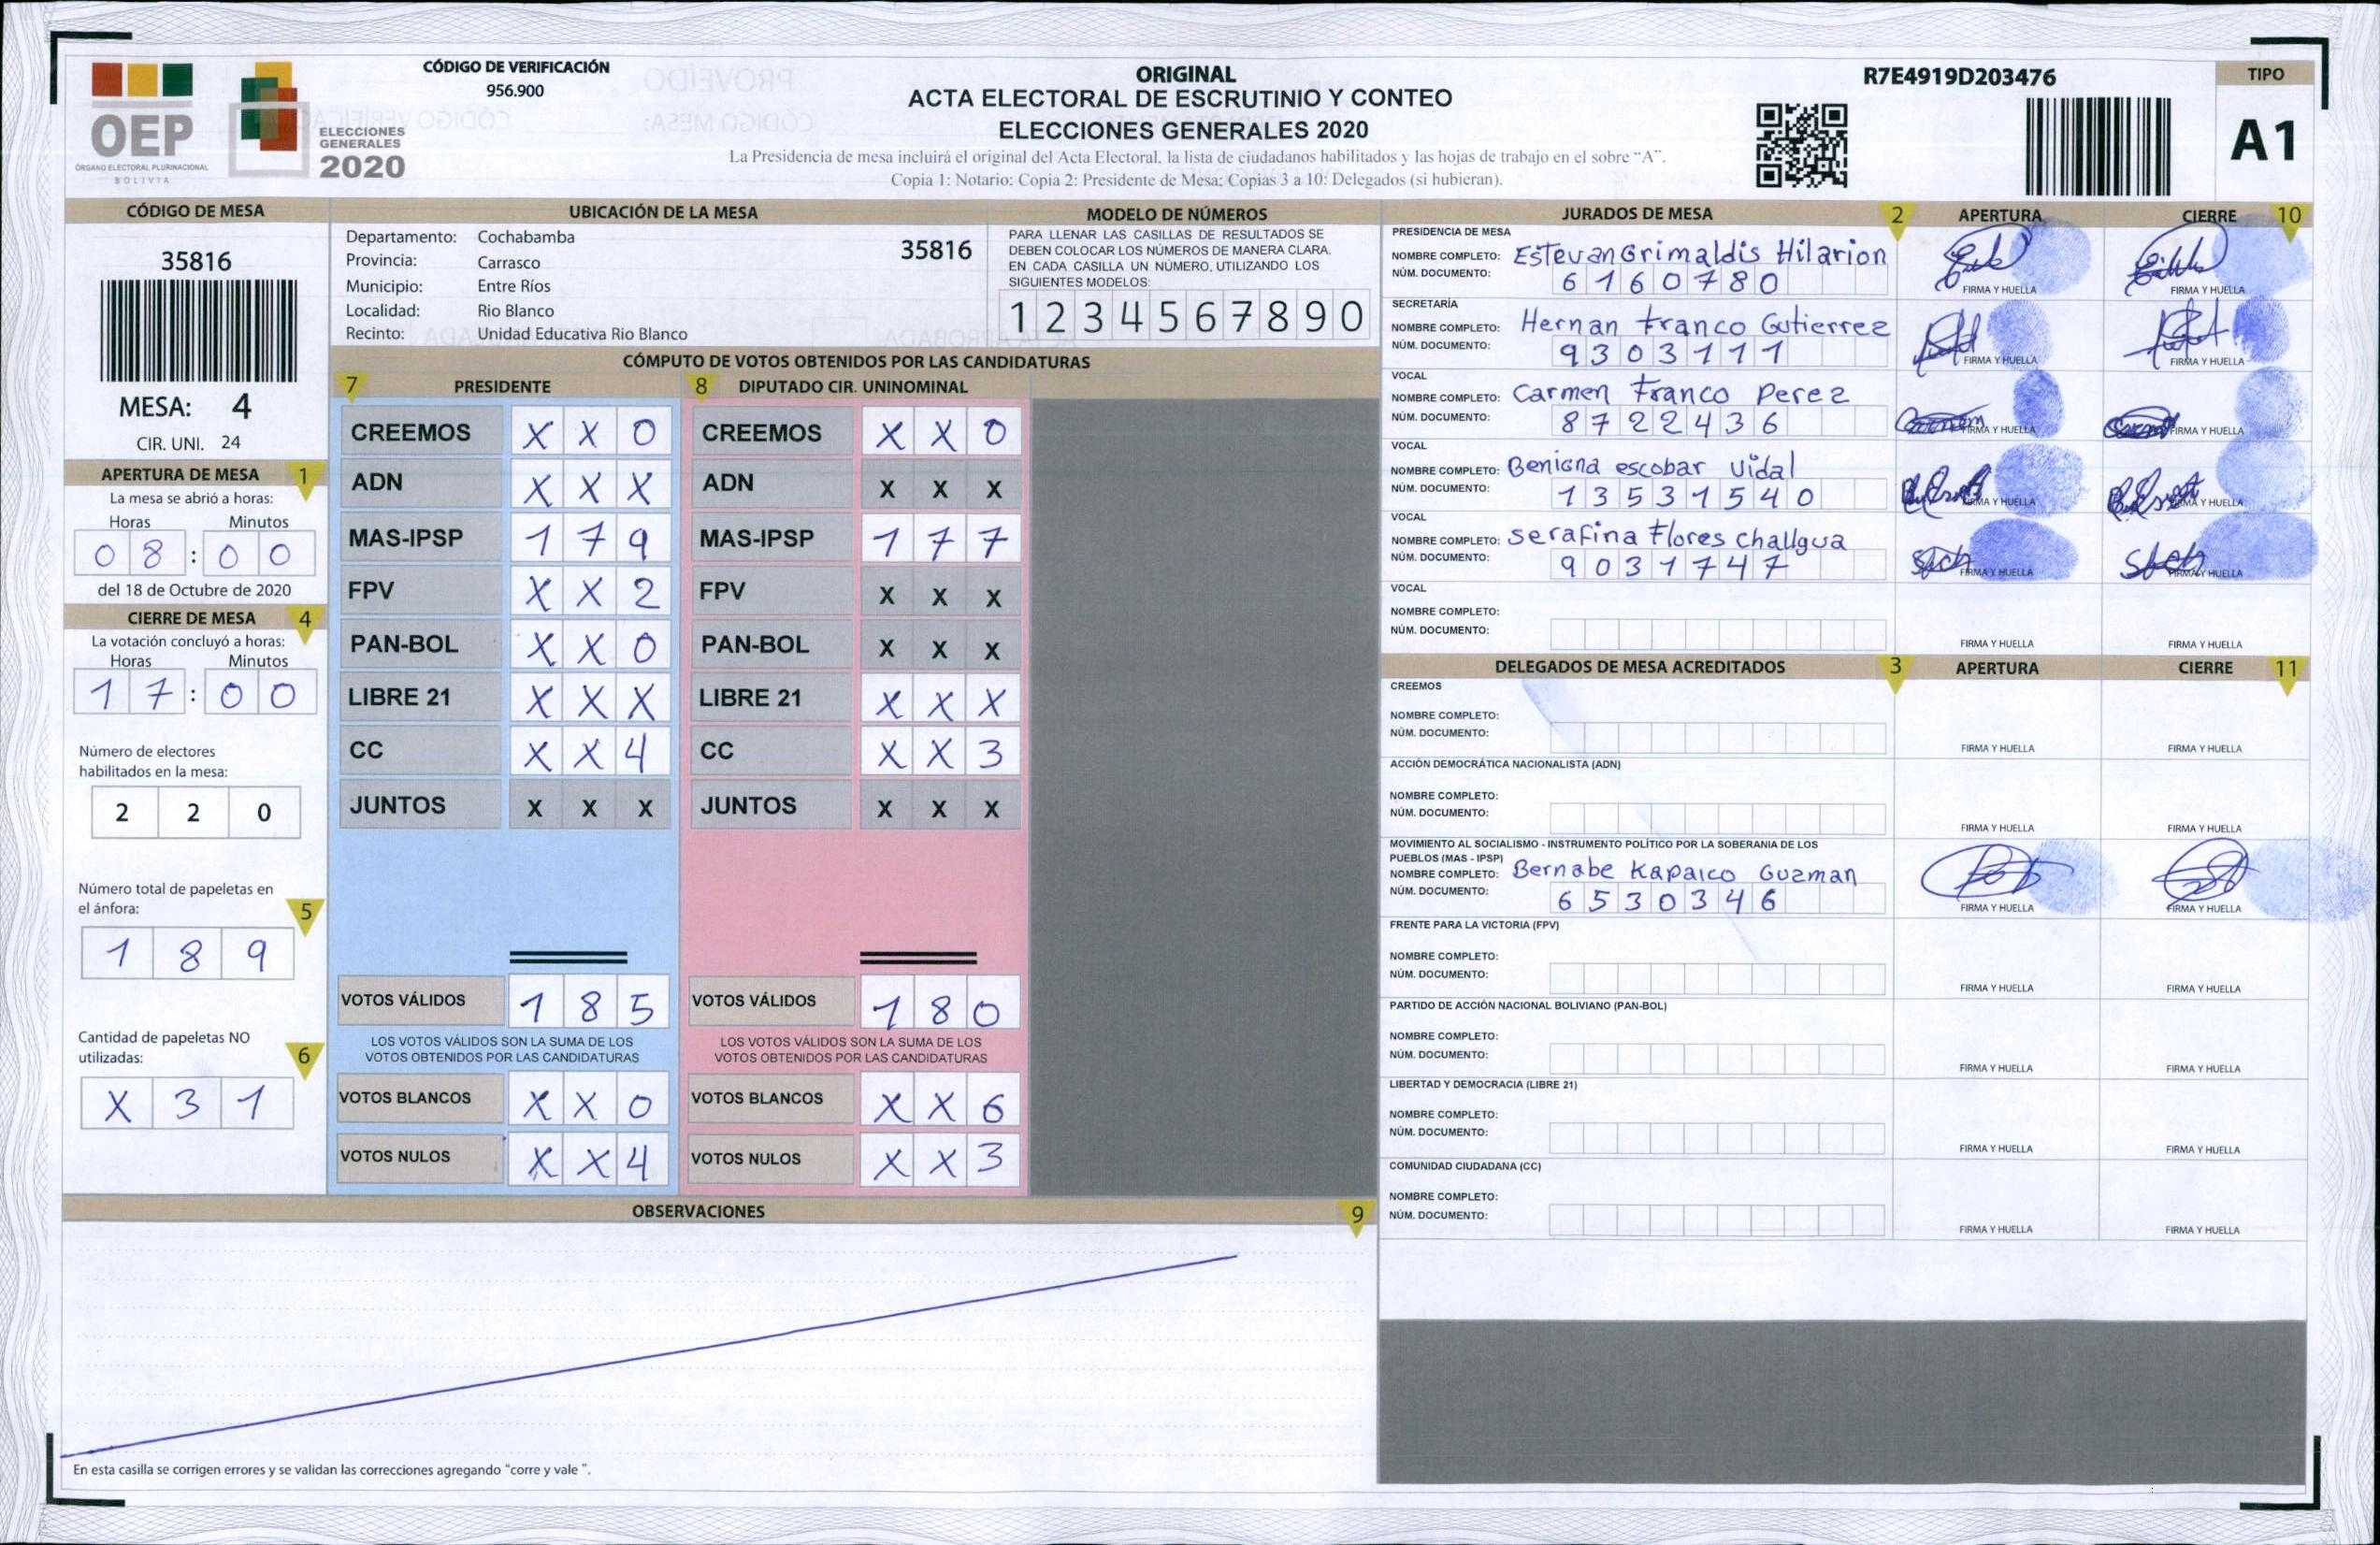 OEP
ÓRGANO ELECTORAL PLURINACIONAL
BOLIVIA
ELECCIONES
GENERALES
2020
CÓDIGO DE VERIFICACIÓN
956.900
ORIGINAL
ACTA ELECTORAL DE ESCRUTINIO Y CONTEO
ELECCIONES GENERALES 2020
La Presidencia de mesa incluirá el original del Acta Electoral, la lista de ciudadanos habilitados y las hojas de trabajo en el sobre "A".
Copia 1: Notario; Copia 2: Presidente de Mesa; Copias 3 a 10: Delegados (si hubieran).
R7E4919D203476
TIPO
A1
CÓDIGO DE MESA
35816
MESA: 4
CIR. UNI. 24
APERTURA DE MESA 1
La mesa se abrió a horas:
Horas Minutos
0 8 : 0 0
del 18 de Octubre de 2020
CIERRE DE MESA 4
La votación concluyó a horas:
Horas Minutos
1 7 : 0 0
Número de electores
habilitados en la mesa:
2 2 0
Número total de papeletas en
el ánfora: 5
1 8 9
Cantidad de papeletas NO
utilizadas: 6
X 3 1
UBICACIÓN DE LA MESA
Departamento: Cochabamba
35816
Provincia: Carrasco
Municipio: Entre Ríos
Localidad: Rio Blanco
Recinto: Unidad Educativa Rio Blanco
MODELO DE NÚMEROS
PARA LLENAR LAS CASILLAS DE RESULTADOS SE
DEBEN COLOCAR LOS NÚMEROS DE MANERA CLARA.
EN CADA CASILLA UN NÚMERO, UTILIZANDO LOS
SIGUIENTES MODELOS:
1 2 3 4 5 6 7 8 9 0
CÓMPUTO DE VOTOS OBTENIDOS POR LAS CANDIDATURAS
7 PRESIDENTE 8 DIPUTADO CIR. UNINOMINAL
CREEMOS X X 0 CREEMOS X X 0
ADN X X X ADN X X X
MAS-IPSP 1 7 9 MAS-IPSP 1 7 7
FPV X X 2 FPV X X X
PAN-BOL X X 0 PAN-BOL X X X
LIBRE 21 X X X LIBRE 21 X X X
CC X X 4 CC X X 3
JUNTOS X X X JUNTOS X X X
VOTOS VÁLIDOS 1 8 5 VOTOS VÁLIDOS 1 8 0
LOS VOTOS VÁLIDOS SON LA SUMA DE LOS LOS VOTOS VÁLIDOS SON LA SUMA DE LOS
VOTOS OBTENIDOS POR LAS CANDIDATURAS VOTOS OBTENIDOS POR LAS CANDIDATURAS
VOTOS BLANCOS X X 0 VOTOS BLANCOS X X 6
VOTOS NULOS X X 4 VOTOS NULOS X X 3
OBSERVACIONES 9
En esta casilla se corrigen errores y se validan las correcciones agregando "corre y vale ".
JURADOS DE MESA 2 APERTURA CIERRE 10
PRESIDENCIA DE MESA
NOMBRE COMPLETO: Estevan Grimaldis Hilarion
NÚM. DOCUMENTO: 6 1 6 0 7 8 0
FIRMA Y HUELLA FIRMA Y HUELLA
SECRETARÍA
NOMBRE COMPLETO: Hernan Franco Gutierrez
NÚM. DOCUMENTO: 9 3 0 3 1 1 1
FIRMA Y HUELLA FIRMA Y HUELLA
VOCAL
NOMBRE COMPLETO: Carmen Franco Perez
NÚM. DOCUMENTO: 8 7 2 2 4 3 6
FIRMA Y HUELLA FIRMA Y HUELLA
VOCAL
NOMBRE COMPLETO: Benigna escobar Vidal
NÚM. DOCUMENTO: 1 3 5 3 1 5 4 0
FIRMA Y HUELLA FIRMA Y HUELLA
VOCAL
NOMBRE COMPLETO: Serafina Flores challgua
NÚM. DOCUMENTO: 9 0 3 1 7 4 7
FIRMA Y HUELLA FIRMA Y HUELLA
VOCAL
NOMBRE COMPLETO:
NÚM. DOCUMENTO:
FIRMA Y HUELLA FIRMA Y HUELLA
DELEGADOS DE MESA ACREDITADOS 3 APERTURA CIERRE 11
CREEMOS
NOMBRE COMPLETO:
NÚM. DOCUMENTO:
FIRMA Y HUELLA FIRMA Y HUELLA
ACCIÓN DEMOCRÁTICA NACIONALISTA (ADN)
NOMBRE COMPLETO:
NÚM. DOCUMENTO:
FIRMA Y HUELLA FIRMA Y HUELLA
MOVIMIENTO AL SOCIALISMO - INSTRUMENTO POLÍTICO POR LA SOBERANIA DE LOS
PUEBLOS (MAS - IPSP)
NOMBRE COMPLETO: Bernabe Kapaico Guzman
NÚM. DOCUMENTO: 6 5 3 0 3 4 6
FIRMA Y HUELLA FIRMA Y HUELLA
FRENTE PARA LA VICTORIA (FPV)
NOMBRE COMPLETO:
NÚM. DOCUMENTO:
FIRMA Y HUELLA FIRMA Y HUELLA
PARTIDO DE ACCIÓN NACIONAL BOLIVIANO (PAN-BOL)
NOMBRE COMPLETO:
NÚM. DOCUMENTO:
FIRMA Y HUELLA FIRMA Y HUELLA
LIBERTAD Y DEMOCRACIA (LIBRE 21)
NOMBRE COMPLETO:
NÚM. DOCUMENTO:
FIRMA Y HUELLA FIRMA Y HUELLA
COMUNIDAD CIUDADANA (CC)
NOMBRE COMPLETO:
NÚM. DOCUMENTO:
FIRMA Y HUELLA FIRMA Y HUELLA